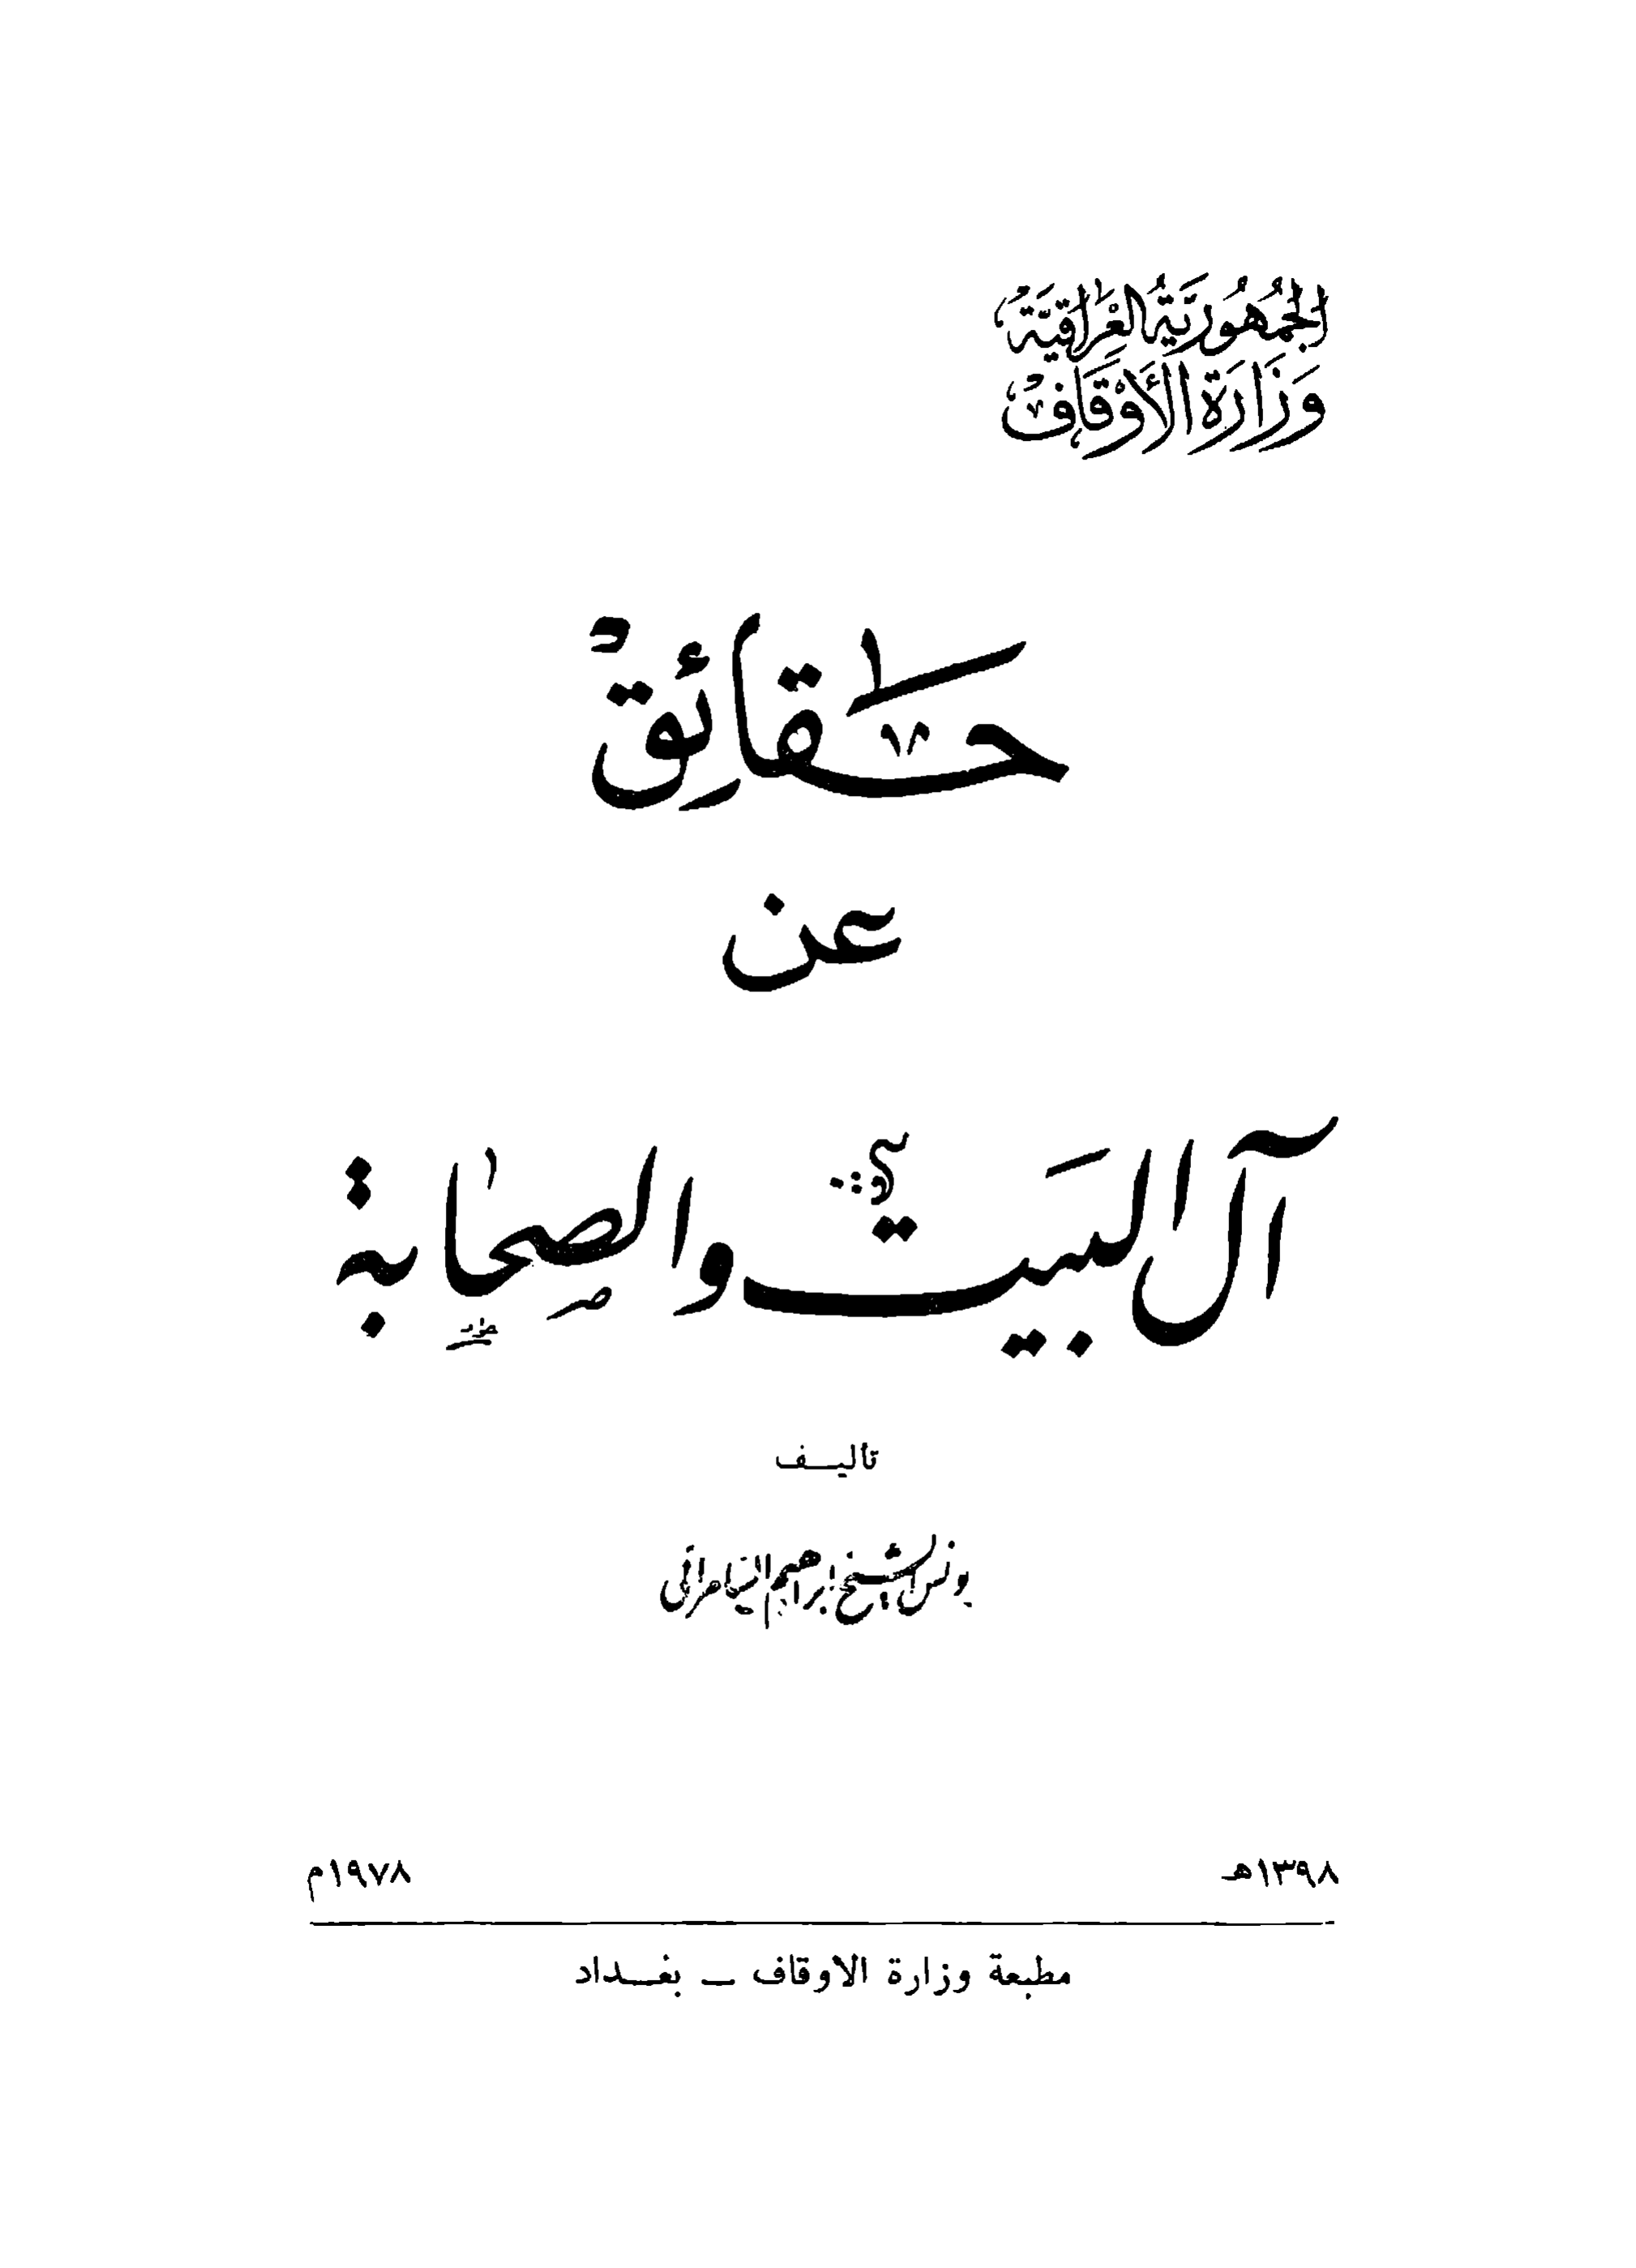 الجُمْهُورِيَّةُ العِرَاقِيَّةُ
وَزَارَةُ الأَوْقَافِ
حقائق
عن
آل البيت والصحابة
تاليف
يونس الشيخ ابراهيم السامرائي
١٣٩٨هـ ١٩٧٨م
مطبعة وزارة الاوقاف – بغداد